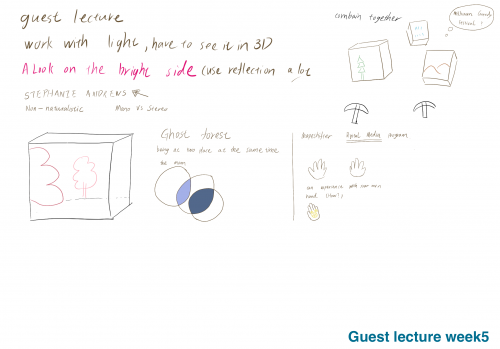 guest lecture
work with light, have to see it in 3D
A Look on the bright side (use reflection a lot
STEPHANIE ANDREWS
Non-naturalistic Mono Vs Stereo
combain together
Ghost forest
being as two place at the same time
the moon
Spiral Medog program
hand
Guest lecture week5